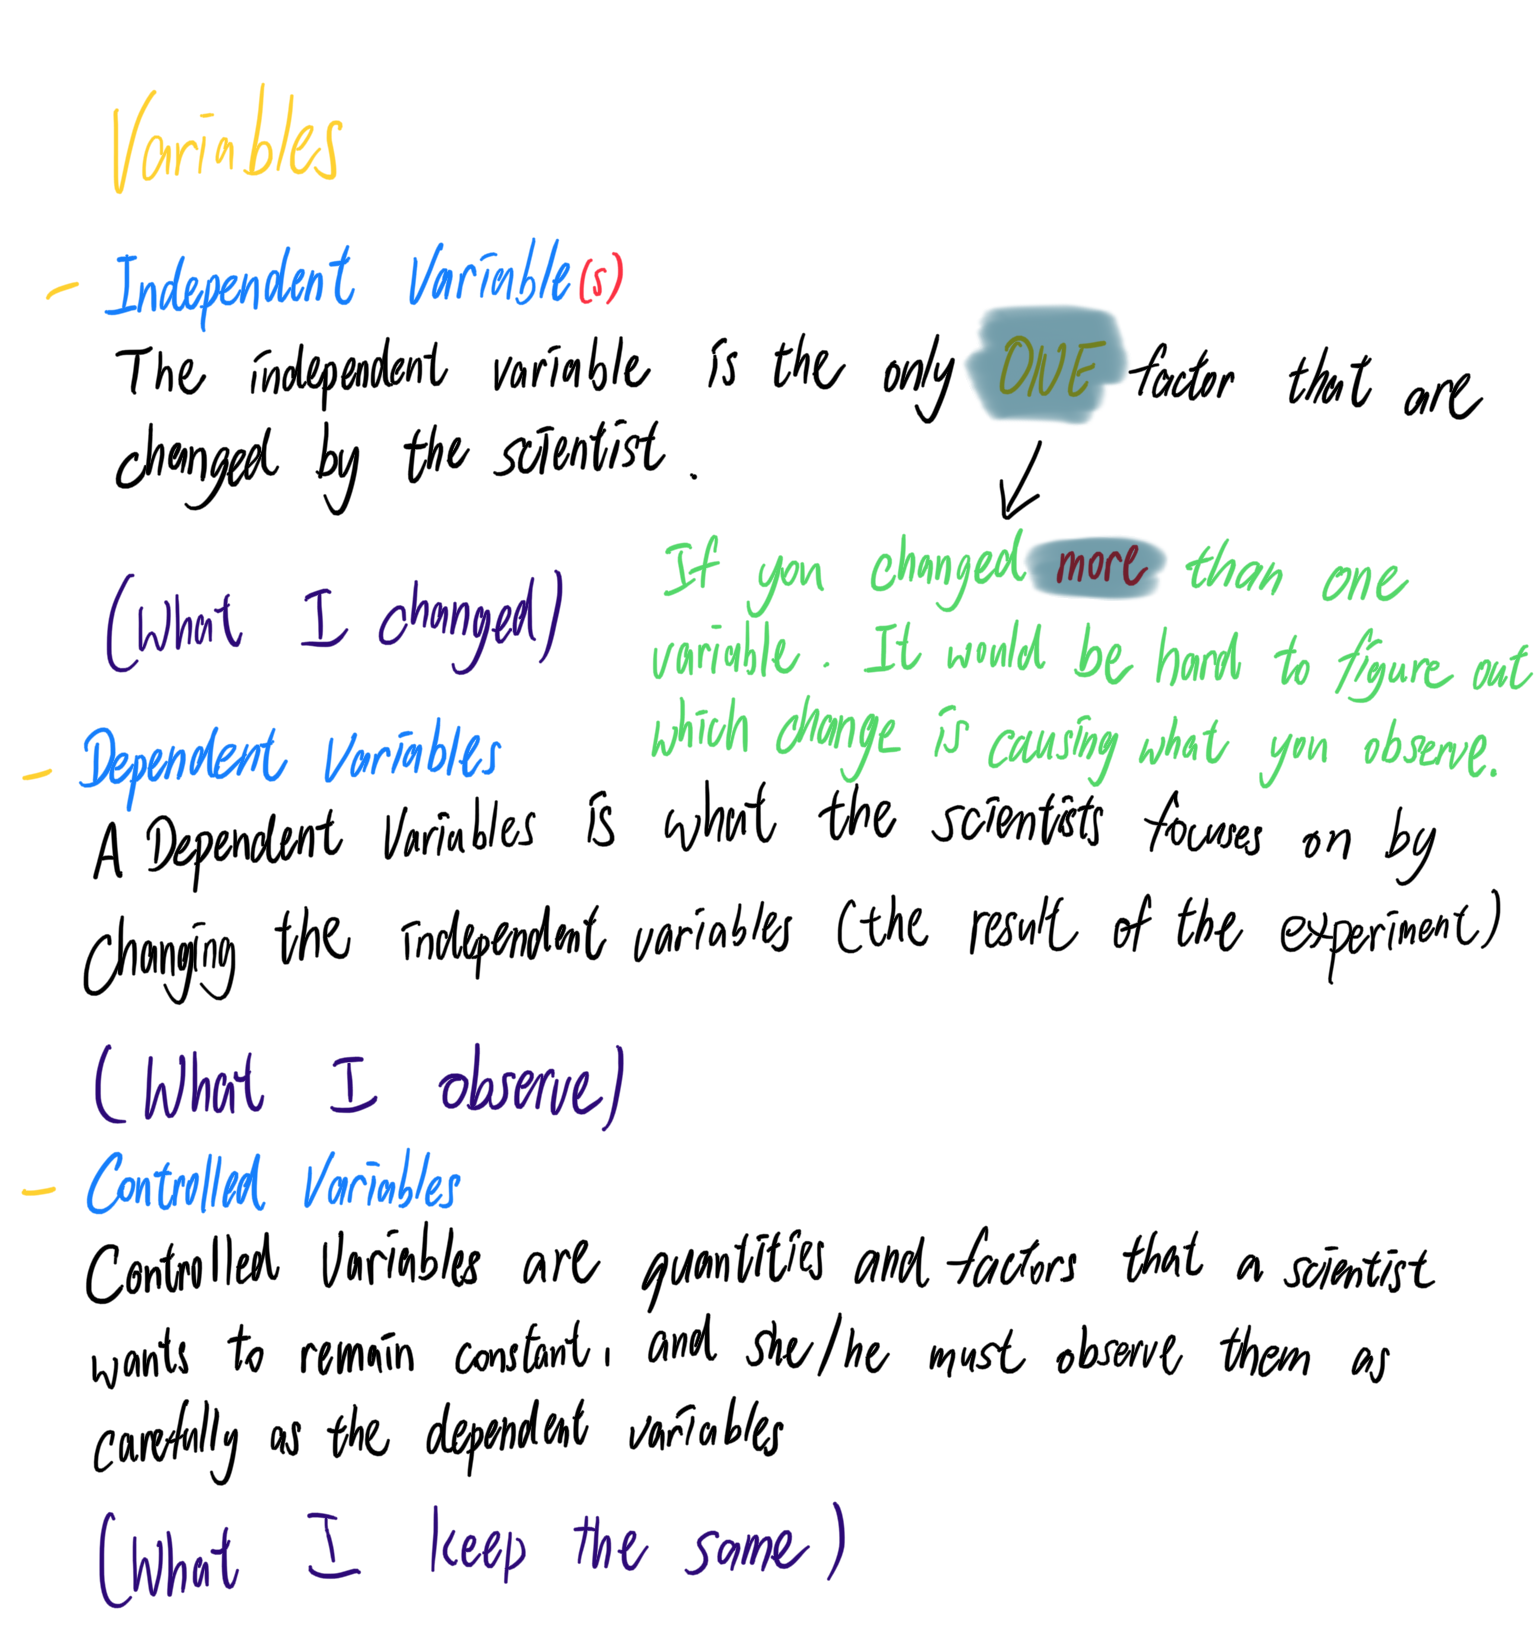 Variables
- Independent Variable(s)
The independent variable is the only ONE factor that are
changed by the scientist.
If you changed more than one
variable. It would be hard to figure out
which change is causing what you observe.
(What I changed)
- Dependent Variables
A Dependent Variables is what the scientists focuses on by
changing the independent variables (the result of the experiment)
(What I observe)
- Controlled Variables
Controlled Variables are quantities and factors that a scientist
wants to remain constant, and she/he must observe them as
carefully as the dependent variables
(What I keep the same)